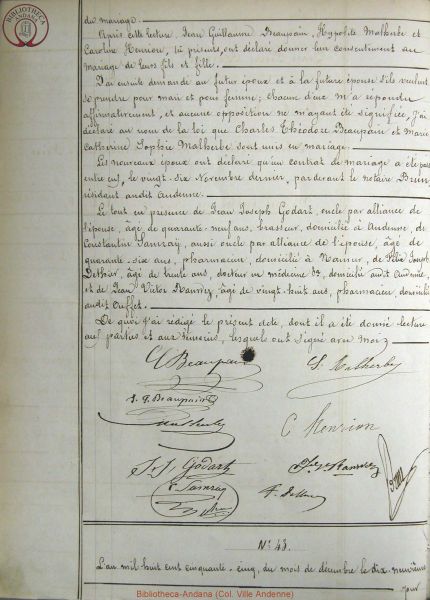 BIBLIOTHECA
ANDANA
du mariage.
Après cette lecture, Jean Guillaume Beaupain, Hypolite Malherbe et
Caroline Henrion, ici présents, ont déclaré donner leur consentement au
mariage de leurs fils et fille.
J'ai ensuite demandé au futur époux et à la future épouse s'ils veulent
se prendre pour mari et pour femme; chacun d'eux m'a répondu
affirmativement, et aucune opposition ne m'ayant été signifiée, j'ai
déclaré au nom de la loi que Charles Théodore Beaupain et Marie
Catherine Sophie Malherbe sont unis en mariage.
Les nouveaux époux ont déclaré qu'un contrat de mariage a été passé
entre eux, le vingt-six Novembre dernier, pardevant le notaire
résidant audit Andenne.
Le tout en présence de Jean Joseph Godart, oncle par alliance de
l'épouse, âgé de quarante-neuf ans, brasseur, domicilié à Andenne, de
Constantin aussi oncle par alliance de l'épouse, âgé de
quarante-six ans, pharmacien, domicilié à Namur, de Joseph
âgé de trente ans, docteur en médecine domicilié audit Andenne,
et de Jean Victor âgé de vingt-huit ans, pharmacien, domicilié
audit
De quoi j'ai rédigé le présent acte, dont il a été donné lecture
aux parties et aux témoins, lesquels ont signé avec moi
Beaupain
S. Malherbe
J. G. Beaupain
C Henrion
J. J. Godart
N° 43.
L'an mil huit cent cinquante-cinq, du mois de décembre le dix-neuvième
jour
Bibliotheca-Andana (Col. Ville Andenne)